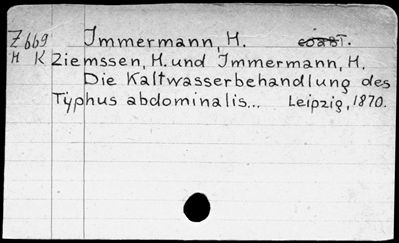 Z669 Immermann, H.
H K Ziemssen, H. und Immermann, H.
Die Kaltwasserbehandlung des
Typhus abdominalis... Leipzig, 1870.